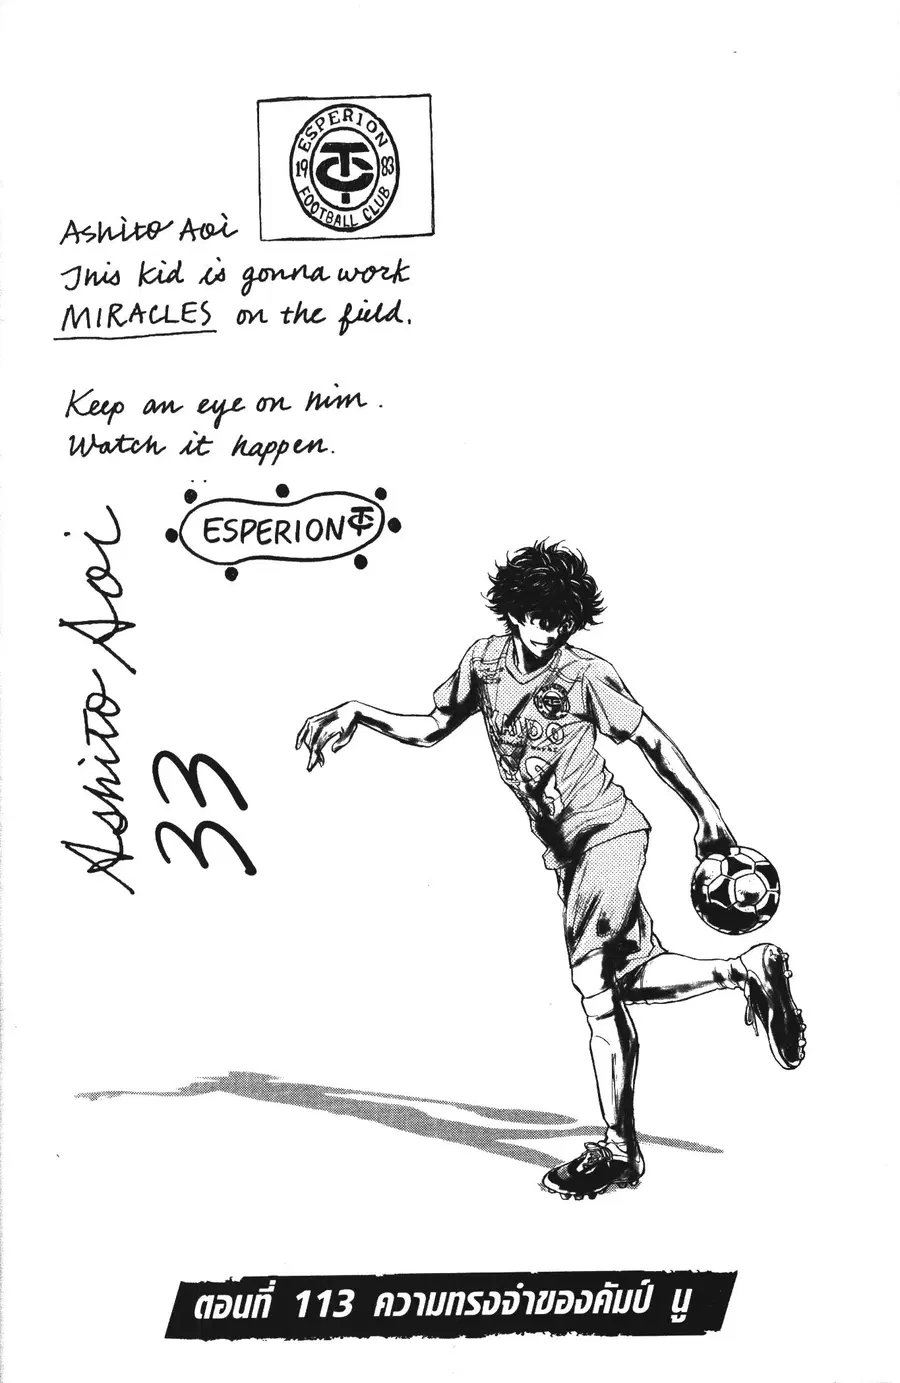 ESPERION
19 83
FOOTBALL CLUB
TC
Ashito Aoi
This kid is gonna work
MIRACLES on the field.
Keep an eye on him.
Watch it happen.
ESPERION TC
Ashito Aoi
33
ESPERION
ตอนที่ 113 ความทรงจำของคัมป์ นู